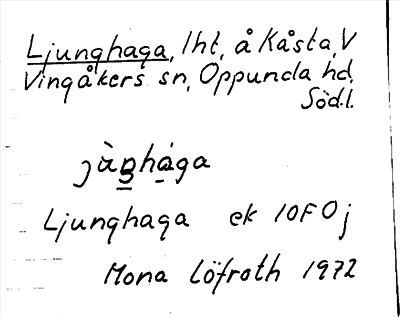 Ljunghaga, lht, å Kåsta, V
Vingåkers sn, Oppunda hd,
Södl.
jàŋhága
Ljunghaga ek 10F0j
Mona Löfroth 1972